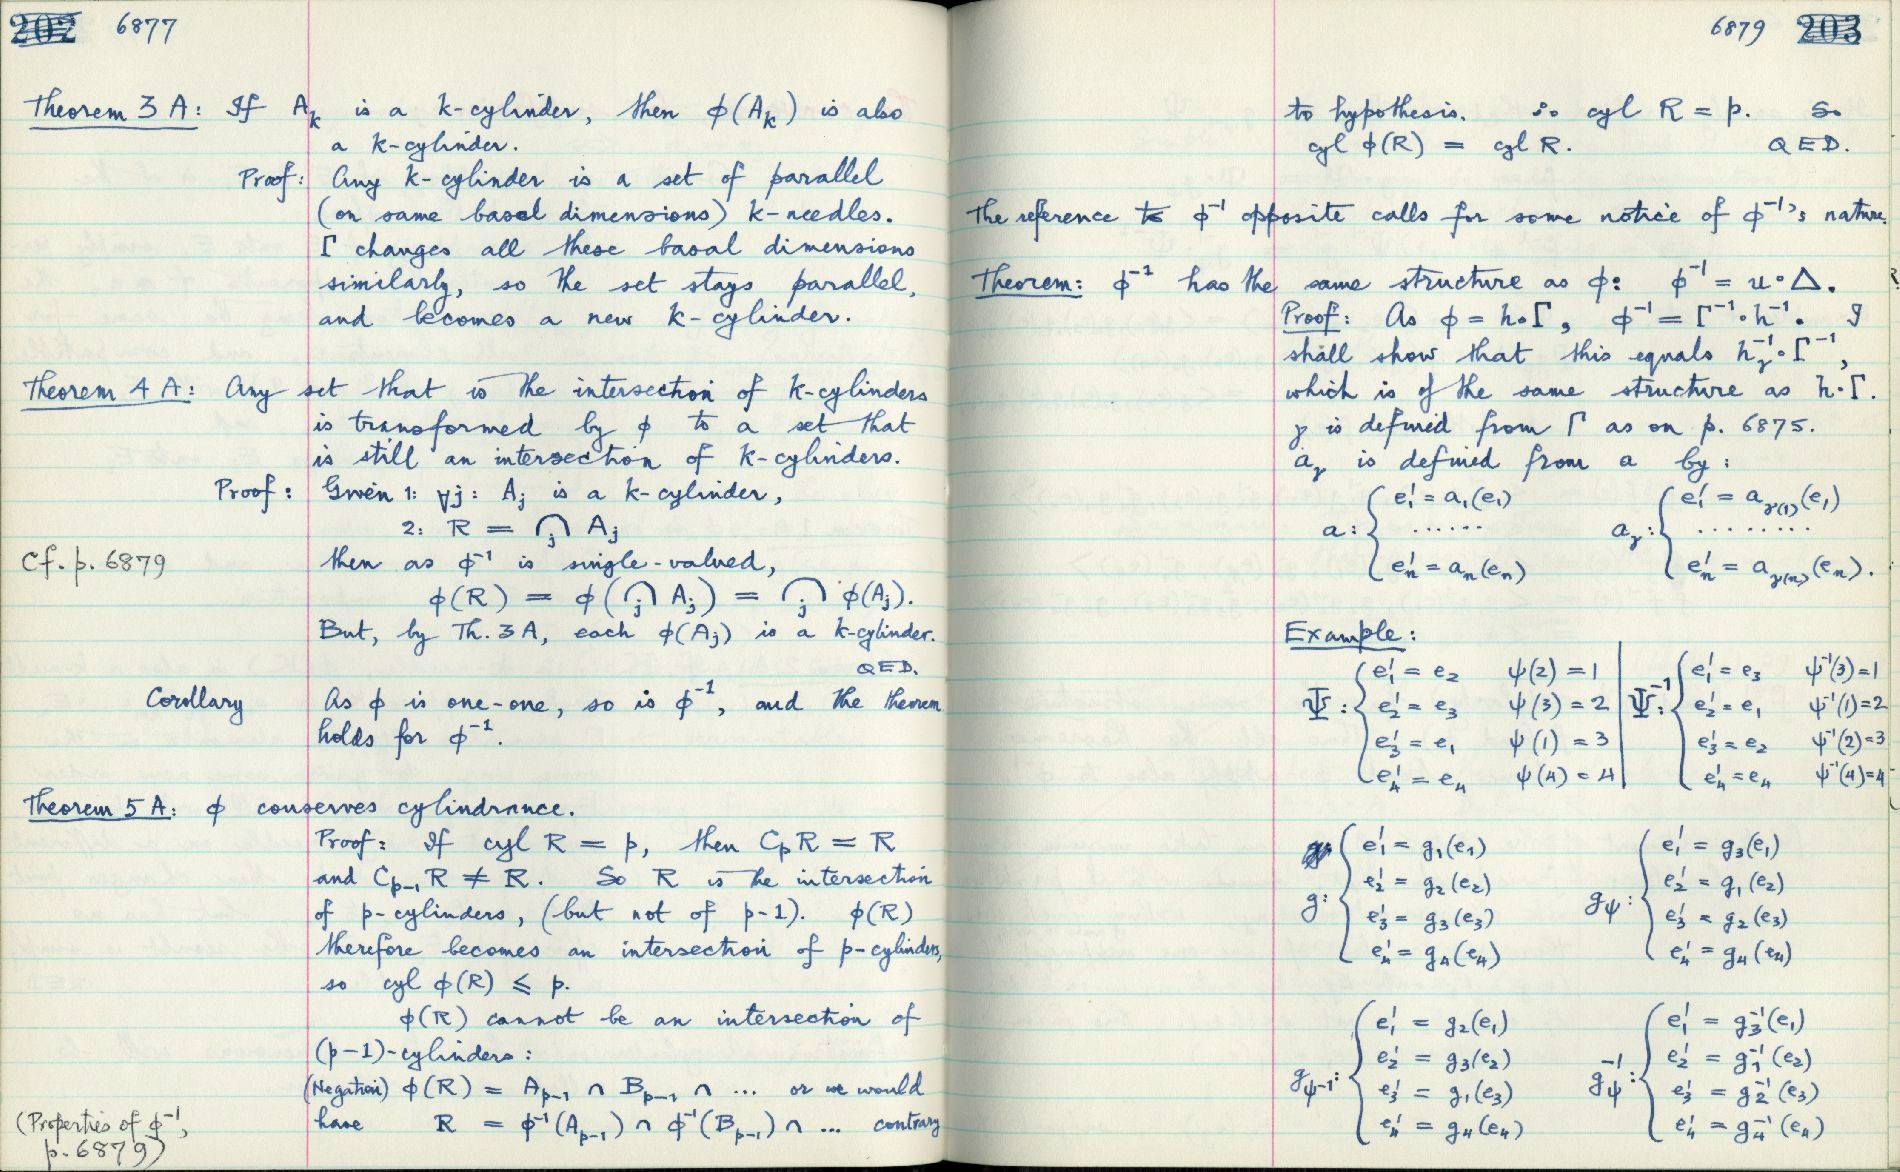 202 6877
Theorem 3A: If A_k is a k-cylinder, then ϕ(A_k) is also
a k-cylinder.
Proof: Any k-cylinder is a set of parallel
(on same basal dimensions) k-needles.
Γ changes all these basal dimensions
similarly, so the set stays parallel,
and becomes a new k-cylinder.
Theorem 4A: Any set that is the intersection of k-cylinders
is transformed by ϕ to a set that
is still an intersection of k-cylinders.
Proof: Given 1: ∀j: A_j is a k-cylinder,
2: R = ⋂_j A_j
Cf. p. 6879 then as ϕ⁻¹ is single-valued,
ϕ(R) = ϕ(⋂_j A_j) = ⋂_j ϕ(A_j).
But, by Th. 3A, each ϕ(A_j) is a k-cylinder.
QED.
Corollary As ϕ is one-one, so is ϕ⁻¹, and the theorem
holds for ϕ⁻¹.
Theorem 5A: ϕ conserves cylindrance.
Proof: If cyl R = p, then C_p R = R
and C_{p-1} R ≠ R. So R is the intersection
of p-cylinders, (but not of p-1). ϕ(R)
therefore becomes an intersection of p-cylinders,
so cyl ϕ(R) ⩽ p.
ϕ(R) cannot be an intersection of
(p-1)-cylinders:
(Negation) ϕ(R) = A_{p-1} ∩ B_{p-1} ∩ ... or we would
have R = ϕ⁻¹(A_{p-1}) ∩ ϕ⁻¹(B_{p-1}) ∩ ... contrary
(Properties of ϕ⁻¹,
p. 6879)
6879 203
to hypothesis. ∴ cyl R = p. So
cyl ϕ(R) = cyl R. QED.
The reference to ϕ⁻¹ opposite calls for some notice of ϕ⁻¹'s nature.
Theorem: ϕ⁻¹ has the same structure as ϕ: ϕ⁻¹ = u∘Δ.
Proof: As ϕ = h∘Γ, ϕ⁻¹ = Γ⁻¹∘h⁻¹. I
shall show that this equals h_γ⁻¹∘Γ⁻¹,
which is of the same structure as h∘Γ.
γ is defined from Γ as on p. 6875.
a_γ is defined from a by:
a: { e₁' = a₁(e₁) a_γ: { e₁' = a_{γ(1)}(e₁)
...... .........
eₙ' = aₙ(eₙ) eₙ' = a_{γ(n)}(eₙ).
Example:
e₁' = e₂ ψ(2) = 1 | e₁' = e₃ ψ⁻¹(3) = 1
Ψ: { e₂' = e₃ ψ(3) = 2 | Ψ⁻¹: { e₂' = e₁ ψ⁻¹(1) = 2
e₃' = e₁ ψ(1) = 3 | e₃' = e₂ ψ⁻¹(2) = 3
e₄' = e₄ ψ(4) = 4 | e₄' = e₄ ψ⁻¹(4) = 4
e₁' = g₁(e₁) e₁' = g₃(e₁)
g: { e₂' = g₂(e₂) g_ψ: { e₂' = g₁(e₂)
e₃' = g₃(e₃) e₃' = g₂(e₃)
e₄' = g₄(e₄) e₄' = g₄(e₄)
e₁' = g₂(e₁) e₁' = g₃⁻¹(e₁)
g_{ψ⁻¹}: { e₂' = g₃(e₂) g_ψ⁻¹: { e₂' = g₁⁻¹(e₂)
e₃' = g₁(e₃) e₃' = g₂⁻¹(e₃)
e₄' = g₄(e₄) e₄' = g₄⁻¹(e₄)